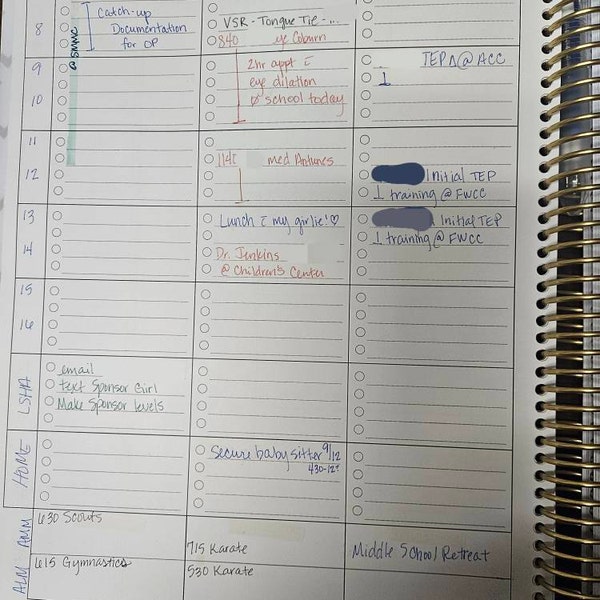 8
Catch-up
Documentation
for OP
@ SMWC
VSR - Tongue Tie - ...
840 eye Coburn
9
2hr appt c̄
eye dilation
∅ school today
10
TEPΔ @ ACC
11
12
med Antunes
Initial TEP
training @ FWCC
13
Lunch c̄ my girlie! ♡
Initial TEP
training @ FWCC
14
Dr. Jenkins
@ Children's Center
15
16
LSHA
email
text Sponsor Girl
Make Sponsor levels
HOME
Secure babysitter 9/12
430-12ª
AMM
630 Scouts
715 Karate
Middle School Retreat
ALM
615 Gymnastics
530 Karate